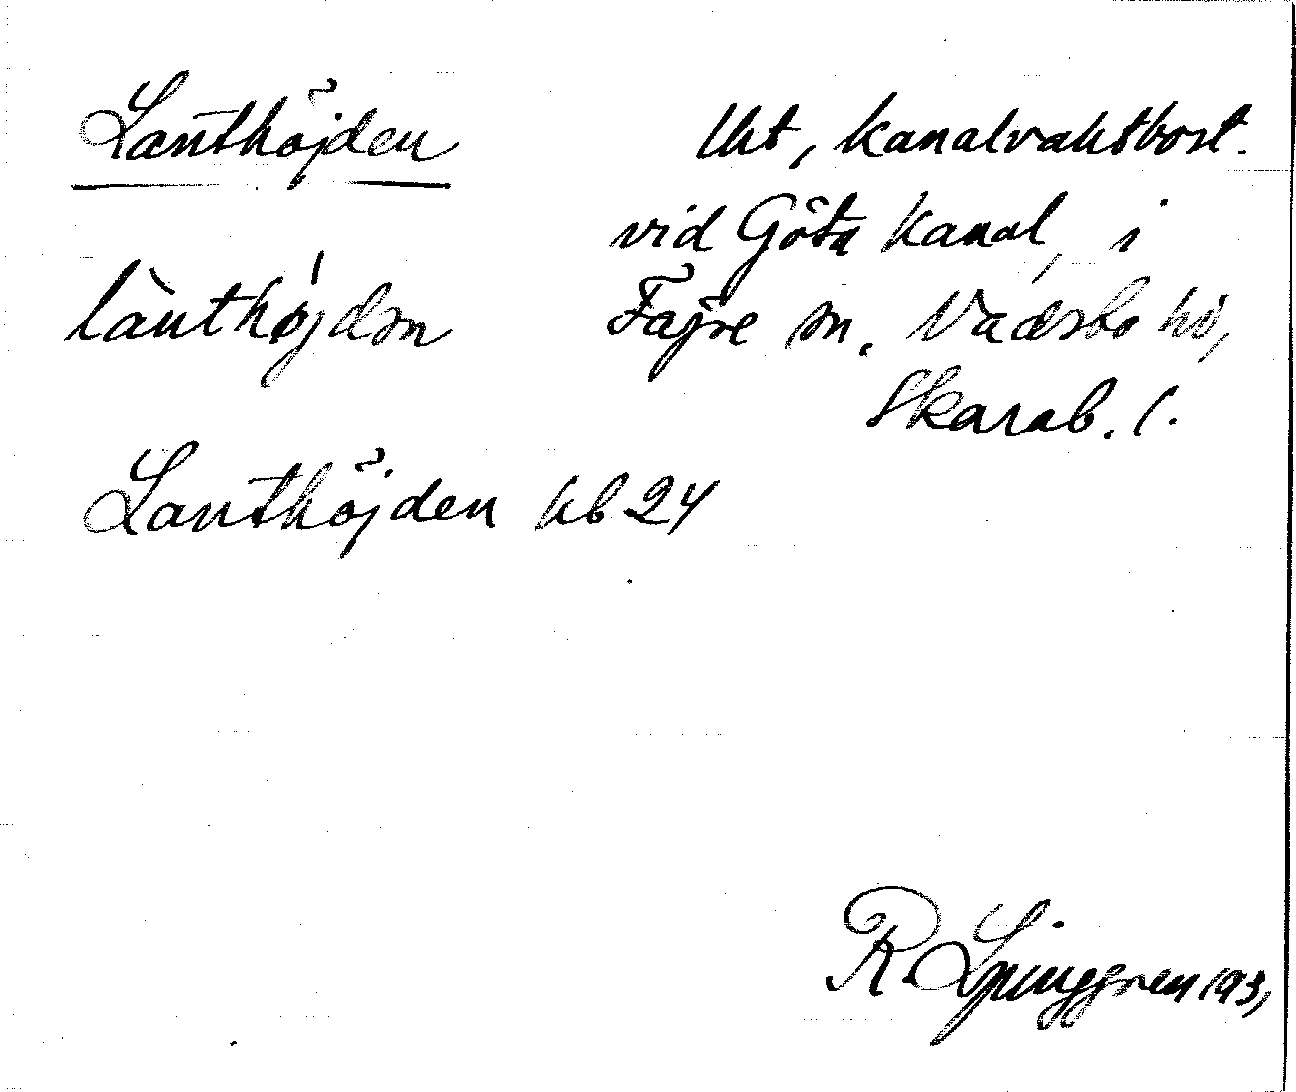 Lanthöjden
lht, kanalvaktbost.
vid Göta Kanal, i
Fägre sn. Vadsbo hd,
Skarab. l.
lànthø̍jdən
Lanthöjden kb 24
R. Ljunggren 193